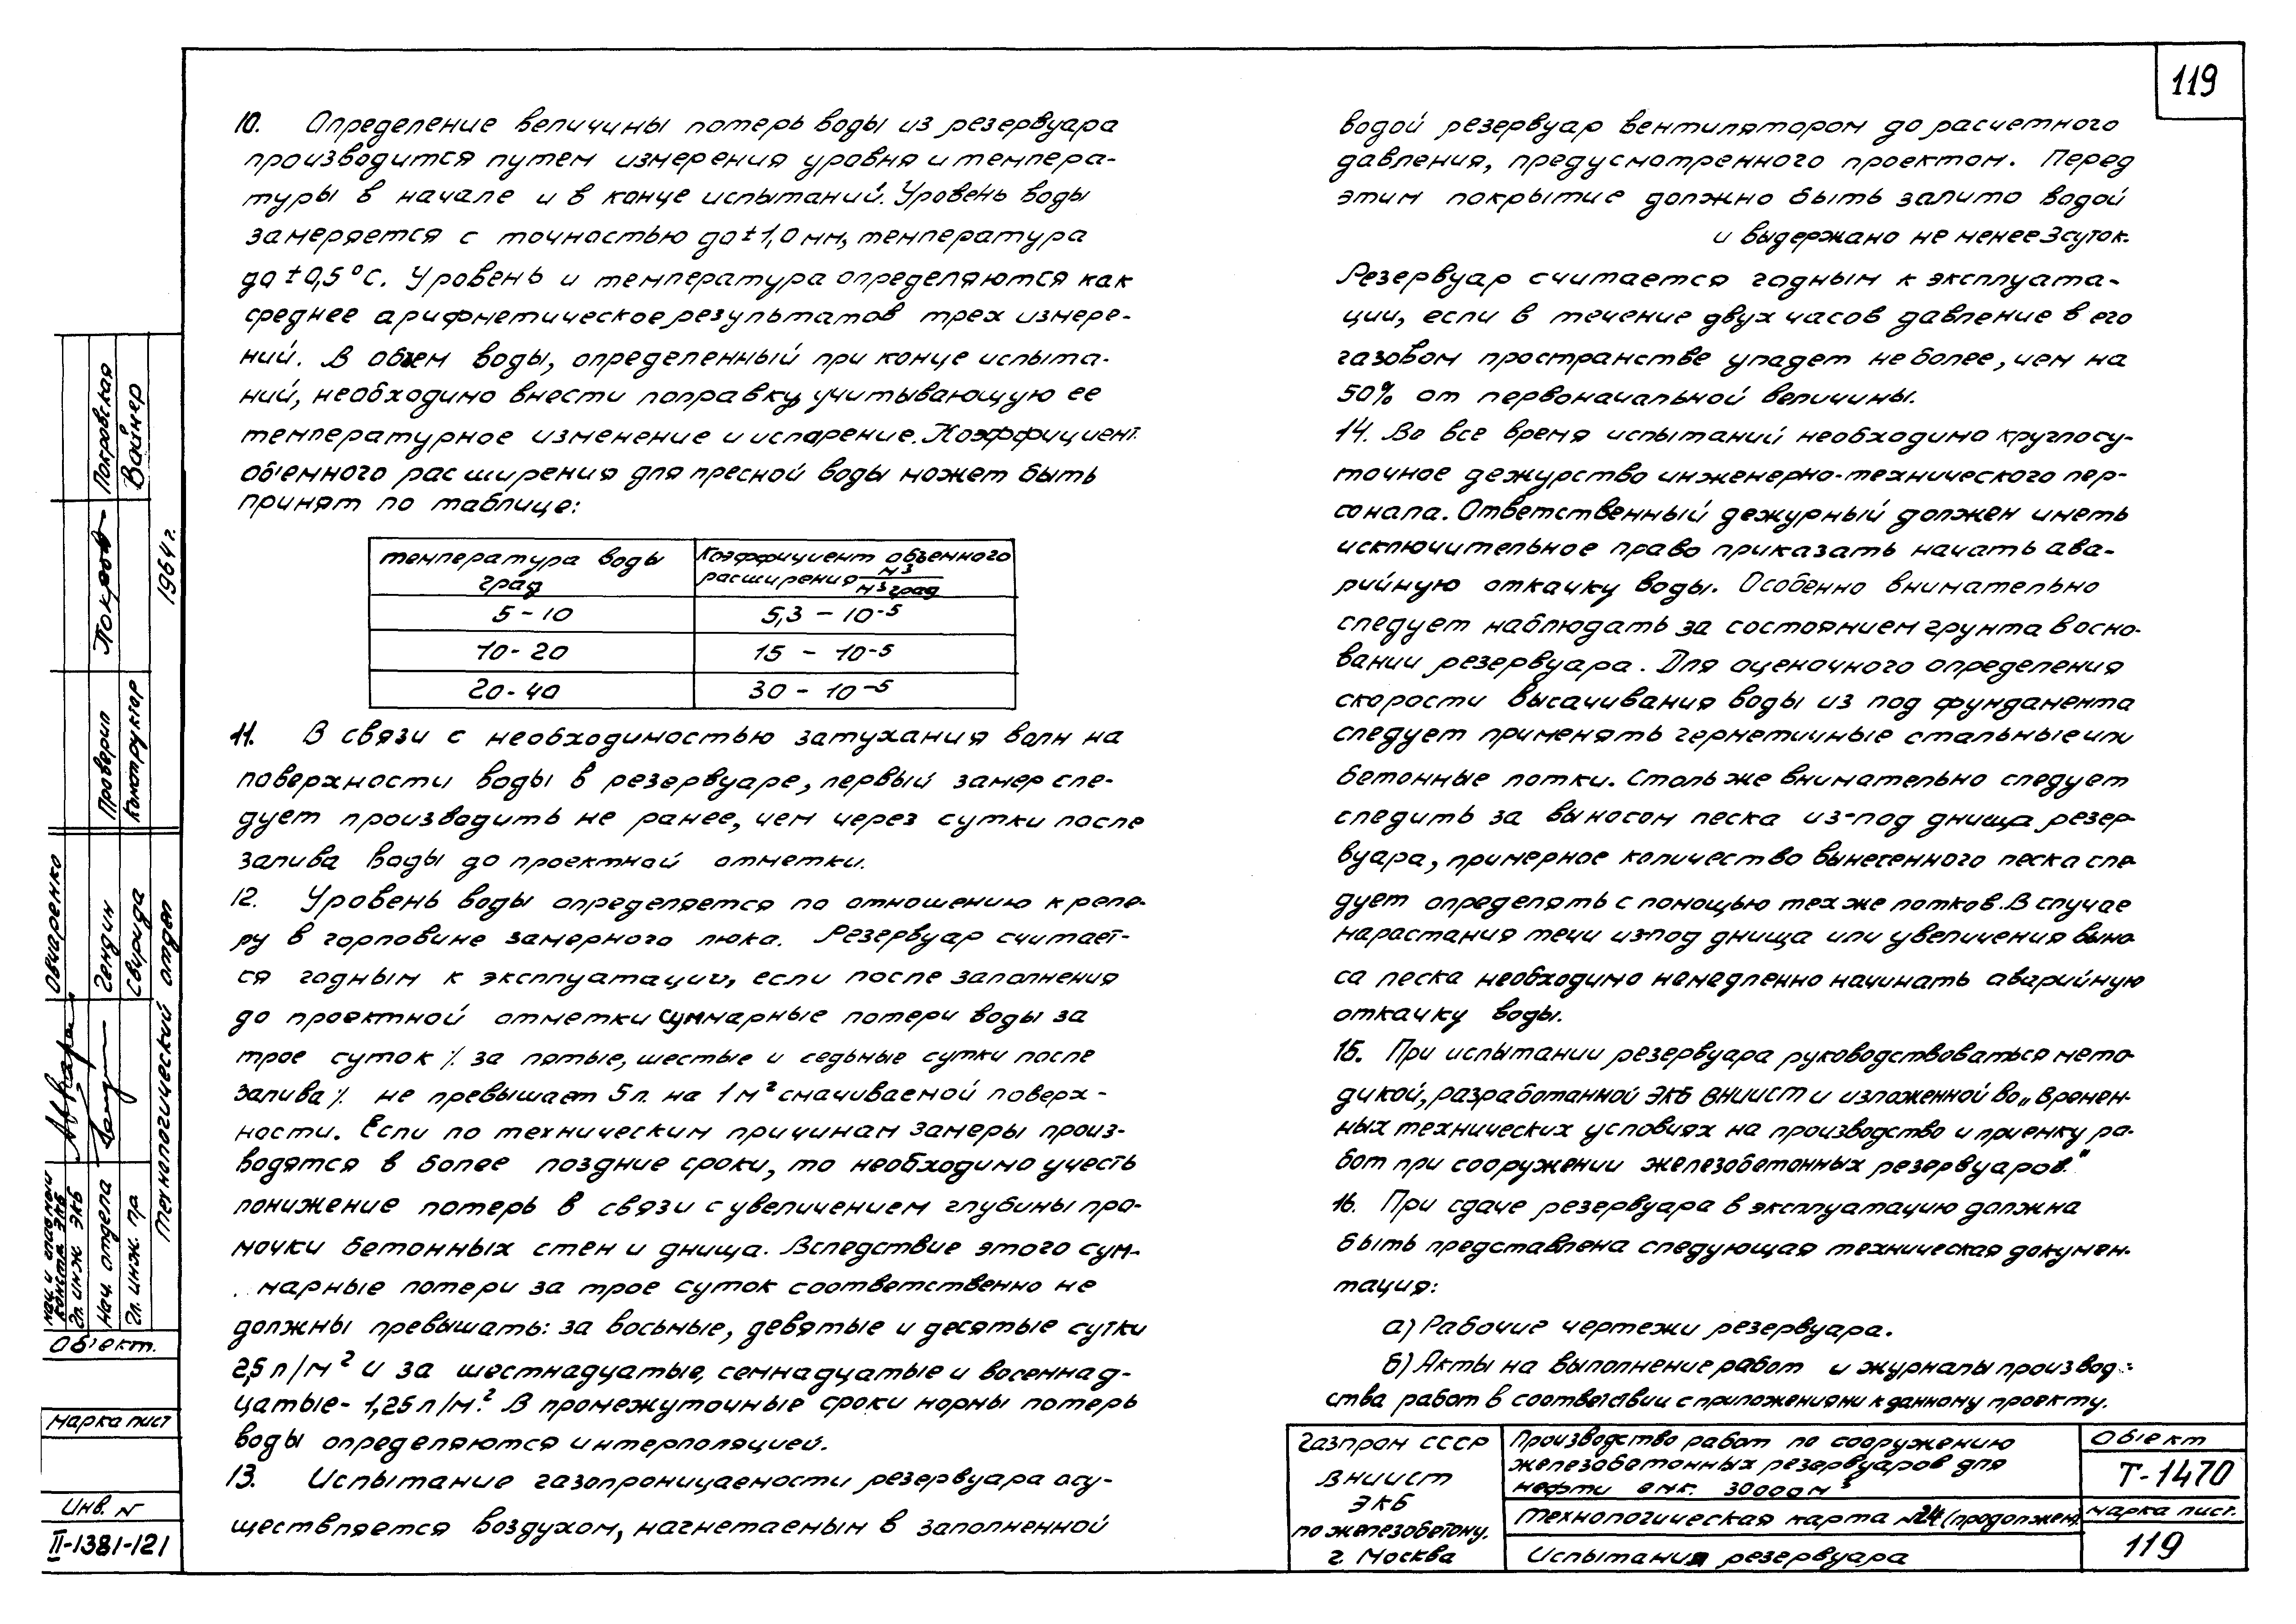 119
10. Определение величины потерь воды из резервуара
производится путем измерения уровня и темпера-
туры в начале и в конце испытаний. Уровень воды
замеряется с точностью до ± 1,0 мм, температура
до ± 0,5°С. Уровень и температура определяются как
среднее арифметическое результатов трех измере-
ний. В объем воды, определенный при конце испыта-
ний, необходимо внести поправку, учитывающую ее
температурное изменение и испарение. Коэффициент
объемного расширения для пресной воды может быть
принят по таблице:
температура воды град | Коэффициент объемного расширения м³/м³град
5 – 10 | 5,3 – 10⁻⁵
10 - 20 | 15 – 10⁻⁵
20 - 40 | 30 – 10⁻⁵
11. В связи с необходимостью затухания волн на
поверхности воды в резервуаре, первый замер сле-
дует производить не ранее, чем через сутки после
залива воды до проектной отметки.
12. Уровень воды определяется по отношению к репе-
ру в горловине замерного люка. Резервуар считает-
ся годным к эксплуатации, если после заполнения
до проектной отметки суммарные потери воды за
трое суток /. за пятые, шестые и седьмые сутки после
залива /. не превышает 5 л. на 1 м² смачиваемой поверх-
ности. Если по техническим причинам замеры произ-
водятся в более поздние сроки, то необходимо учесть
понижение потерь в связи с увеличением глубины про-
мочки бетонных стен и днища. Вследствие этого сум-
марные потери за трое суток соответственно не
должны превышать: за восьмые, девятые и десятые сутки
2,5 л/м² и за шестнадцатые, семнадцатые и восемнад-
цатые - 1,25 л/м². В промежуточные сроки нормы потерь
воды определяются интерполяцией.
13. Испытание газопроницаемости резервуара осу-
ществляется воздухом, нагнетаемым в заполненной
водой резервуар вентилятором до расчетного
давления, предусмотренного проектом. Перед
этим покрытие должно быть залито водой
и выдержано не менее 3 суток.
Резервуар считается годным к эксплуата-
ции, если в течение двух часов давление в его
газовом пространстве упадет не более, чем на
50% от первоначальной величины.
14. Во все время испытаний необходимо круглосу-
точное дежурство инженерно-технического пер-
сонала. Ответственный дежурный должен иметь
исключительное право приказать начать ава-
рийную откачку воды. Особенно внимательно
следует наблюдать за состоянием грунта в осно-
вании резервуара. Для оценочного определения
скорости высачивания воды из под фундамента
следует применять герметичные стальные или
бетонные лотки. Столь же внимательно следует
следить за выносом песка из-под днища резер-
вуара, примерное количество вынесенного песка сле-
дует определять с помощью тех же лотков. В случае
нарастания течи из-под днища или увеличения выно-
са песка необходимо немедленно начинать аварийную
откачку воды.
15. При испытании резервуара руководствоваться мето-
дикой, разработанной ЭКБ ВНИИСТ и изложенной во „Времен-
ных технических условиях на производство и приемку ра-
бот при сооружении железобетонных резервуаров."
16. При сдаче резервуара в эксплуатацию должна
быть представлена следующая техническая докумен-
тация:
а) Рабочие чертежи резервуара.
б) Акты на выполнение работ и журналы производ-
ства работ в соответствии с приложениями к данному проекту.
Газпром СССР
ВНИИСТ
ЭКБ
по железобетону.
г. Москва
Производство работ по сооружению
железобетонных резервуаров для
нефти емк. 30000 м³
Технологическая карта №24 (продолжен)
Испытания резервуара
Объект
Т-1470
марка лист.
119
Покровская
Вайнер
Покров
1964 г.
Проверил
Конструктор
Овчаренко
Гендин
Свирида
Технологический отдел
Гл. инж ЭКБ
Нач. отдела
Гл. инж. пр
Объект.
марка лист
Инв. N
II-1381-121